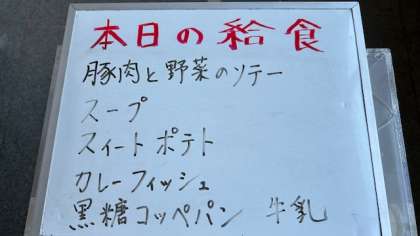 本日の給食
豚肉と野菜のソテー
スープ
スィートポテト
カレーフィッシュ
黒糖コッペパン 牛乳